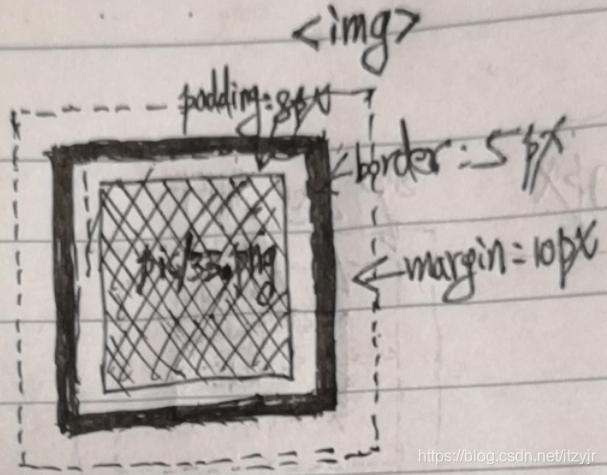 <img>
padding:8px
border:5px
margin:10px
pic/33.png
https://blog.csdn.net/itzyjr